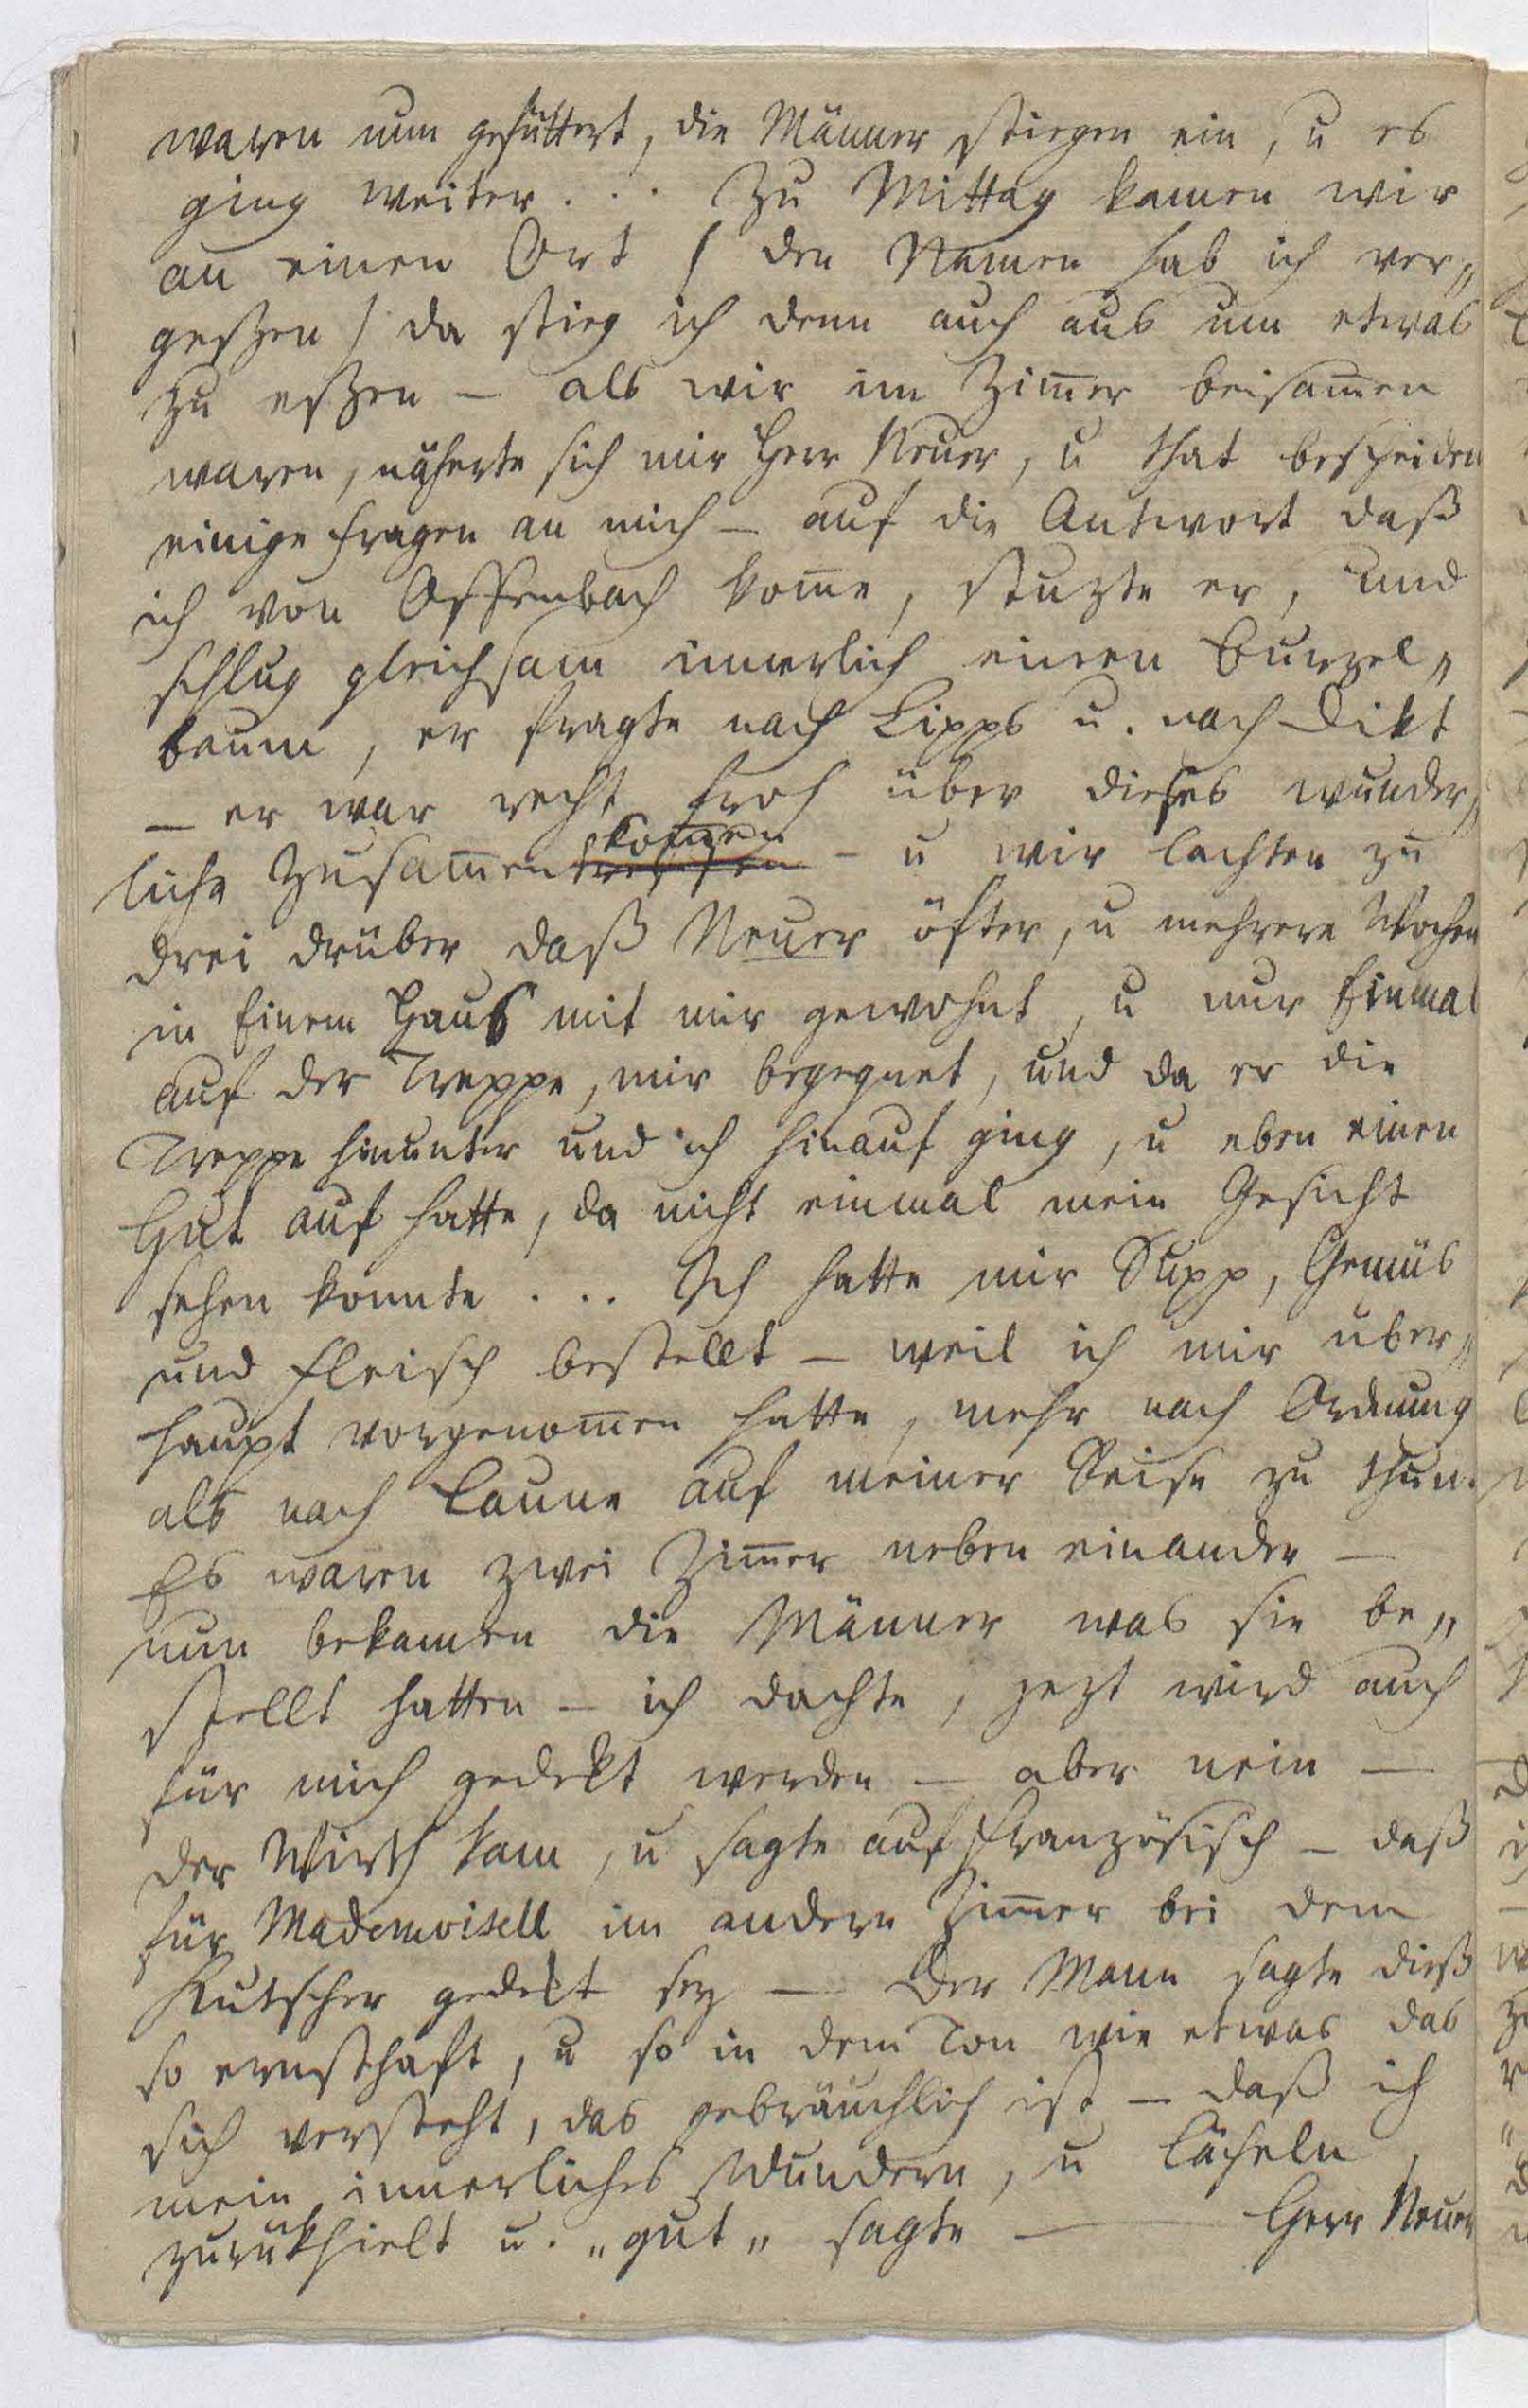 waren nun gefüttert, die Männer stiegen ein, u es
ging weiter... Zu Mittag kamen wir
an einen Ort /den Namen hab ich ver„
geßen/ da stieg ich denn auch aus um etwas
zu eßen – als wir im Zim̄er beisam̄en
waren, näherte sich mir Herr Neuer, u that bescheiden
einige Fragen an mich – auf die Antwort daß
ich von Offenbach kom̄e, stuzte er, und
schlug gleichsam innerlich einen Burzel„
baum, er fragte nach Lipps u. nach Dikt
– er war recht froh über dieses wunder„
liche Zusam̄entreffen kom̄en – u wir lachten zu
drei drüber daß Neuer öfter, u mehrere Wochen
in Einem Haus mit mir gewohnt, u nur Einmal
auf der Treppe, mir begegnet, und da er die
Treppe hinunter und ich hinauf ging, u eben einen
Hut auf hatte, da nicht einmal mein Gesicht
sehen konnte... Ich hatte mir Supp, Gemüs
und Fleisch bestellt – weil ich mir über„
haupt vorgenom̄en hatte, mehr nach Ordnung
als nach Laune auf meiner Reise zu thun.
Es waren zwei Zim̄er neben einander –
nun bekamen die Männer was sie be„
stellt hatten – ich dachte, jezt wird auch
für mich gedekt werden – aber nein –
der Wirth kam, u sagte auf französisch – daß
für Mademoisell im andern Zim̄er bei dem
Kutscher gedekt sey – Der Mann sagte dieß
so ernsthaft, u so in dem Ton wie etwas das
sich versteht, das gebräuchlich ist – daß ich
mein innerliches Wundern, u Lächeln,
zurükhielt u. „gut„ sagte – Herr Neuer